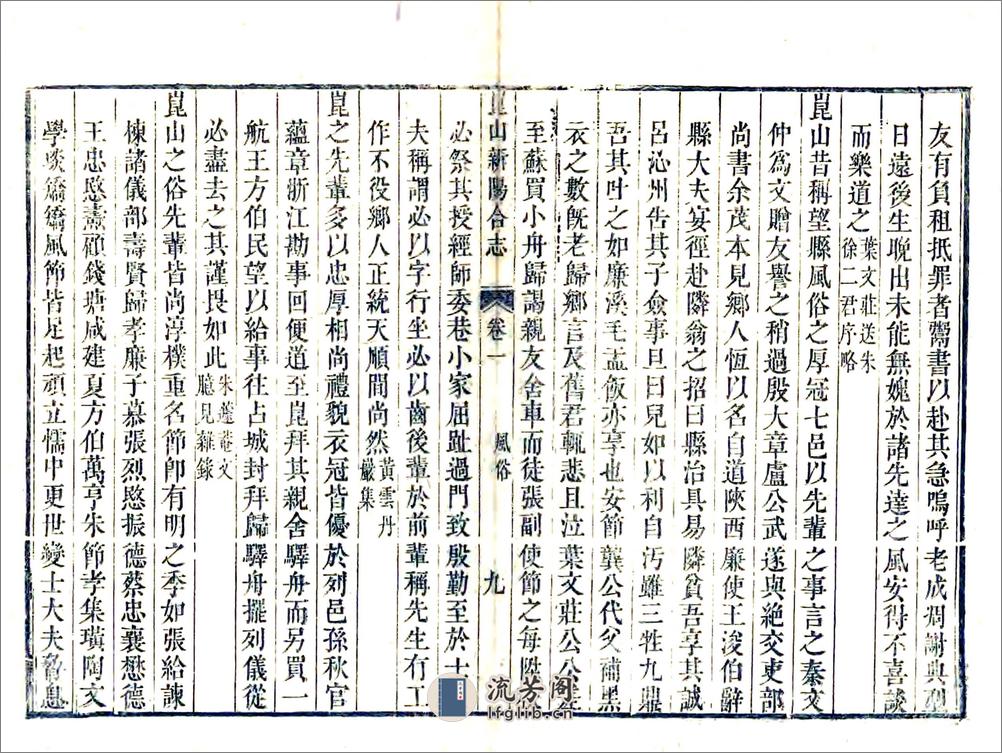 友有負租抵罪者鬻書以赴其急嗚呼老成凋謝典型
日遠後生晚出未能無媿於諸先達之風安得不喜談
而樂道之葉文莊送朱徐二君序略
崑山昔稱望縣風俗之厚冠七邑以先輩之事言之秦文
仲為文贈友譽之稍過殷大章盧公武遂與絕交吏部
尚書余茂本見鄉人恆以名自道陝西廉使王浚伯辭
縣大夫宴徑赴隣翁之招曰縣治具易隣貧吾享其誠
呂沁州告其子僉事旦曰兒如以利自汚雖三牲九鼎
吾其吐之如廉溪毛盂飯亦享也安節龔公代父補黑
衣之數旣老歸鄉言及舊君輒悲且泣葉文莊公
至蘇買小舟歸謁親友舍車而徒張副使節之每
崑山新陽合志 卷一 風俗 九
必祭其授經師委巷小家屈趾過門致殷勤至於士
夫稱謂必以字行坐必以齒後輩於前輩稱先生有工
作不役鄉人正統天順間尚然黃雲丹巖集
崑之先輩多以忠厚相尚禮貌衣冠皆優於列邑孫秋官
蘊章浙江勘事回便道至崑拜其親舍驛舟而另買一
航王方伯民望以給事往占城封拜歸驛舟擺列儀從
必盡去之其謹畏如此朱蓮菴文臆見雜錄
崑山之俗先輩皆尚淳樸重名節卽有明之季如張給諫
棟諸儀部壽賢歸孝廉子慕張烈愍振德蔡忠襄懋德
王忠愍燾顧錢塘咸建夏方伯萬亨朱節孝集璜陶文
學琰矯矯風節皆足起頑立懦中更世變士大夫脅息
流芳阁
lfglib.cn